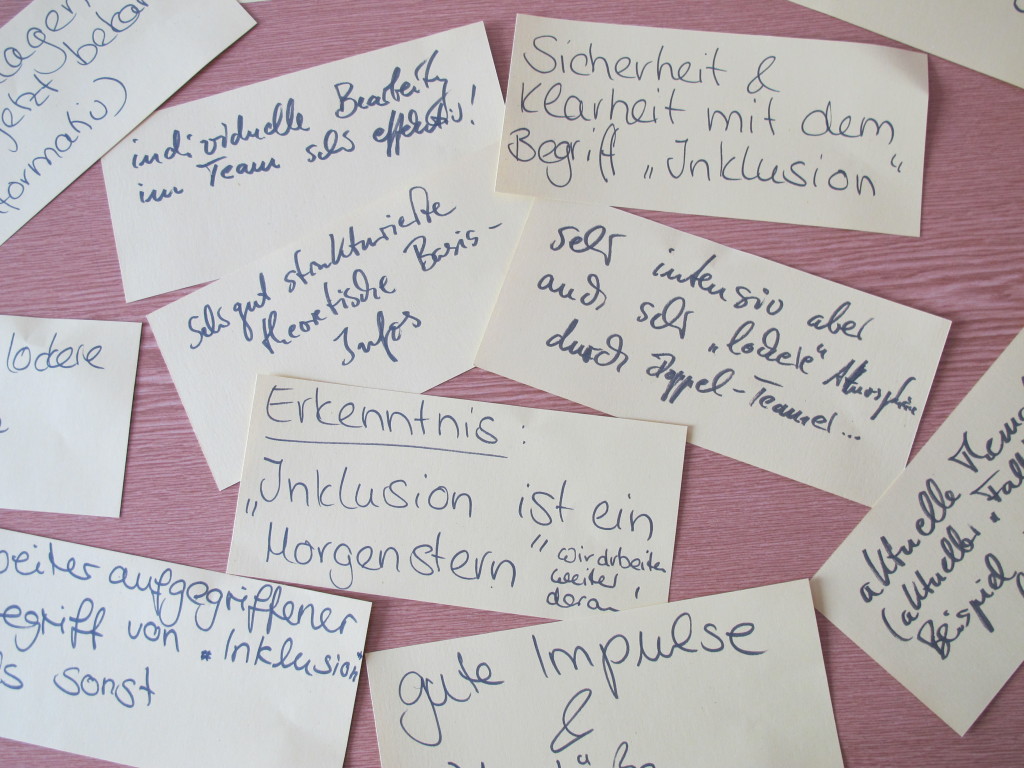 jetzt bekan
formativ)
individuelle Bearbeitg
im Team sehr effektiv!
Sicherheit &
Klarheit mit dem
Begriff „Inklusion“
sehr gut strukturierte
theoretische Basis-
Infos
sehr intensiv aber
auch sehr „lockere“ Atmosphäre
durch Doppel-Teamer...
lockere
Erkenntnis:
„Inklusion ist ein
Morgenstern“
wir arbeiten
weiter
daran!
aktuelle
(aktuelles „Fall
Beispiel
weiter aufgegriffener
egriff von "Inklusion"
s sonst
gute Impulse
&